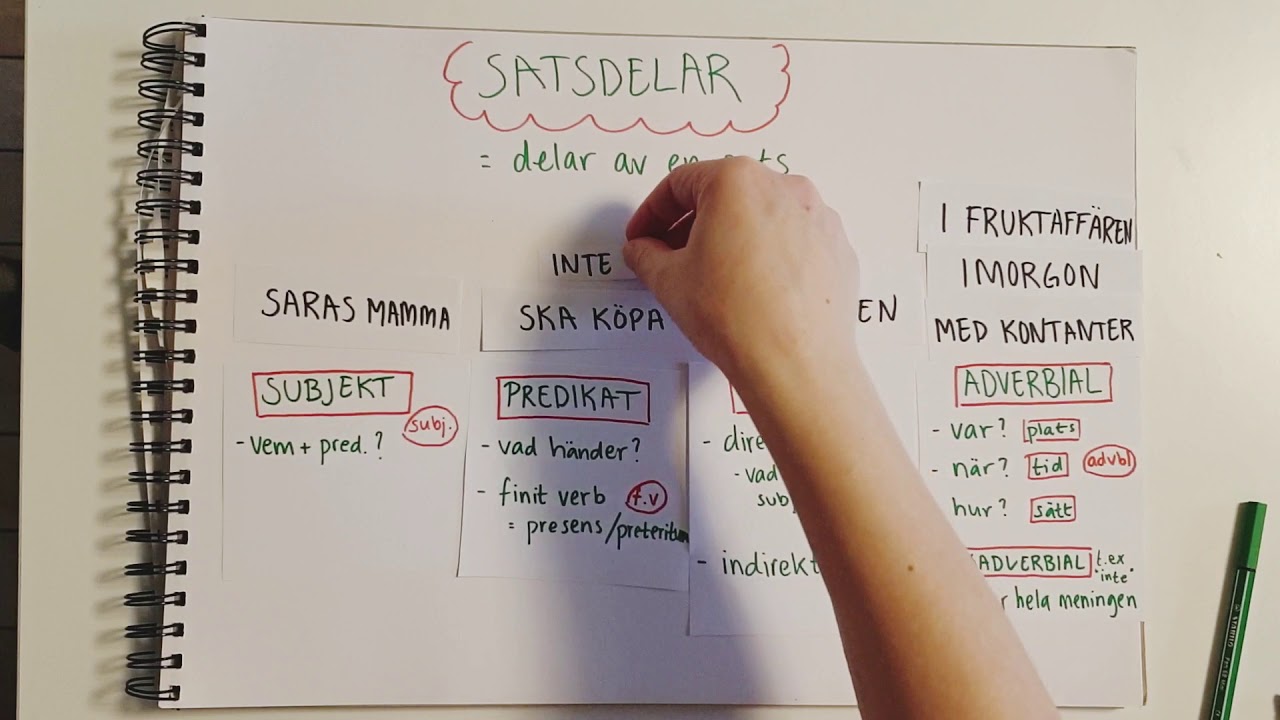 SATSDELAR
= delar av en sats
I FRUKTAFFÄREN
INTE
IMORGON
SARAS MAMMA
SKA KÖPA
EN
MED KONTANTER
SUBJEKT
subj.
- vem + pred.?
PREDIKAT
- vad händer?
- finit verb f.v
= presens/preteritum
- dire
- vad
subj
- indirekt
ADVERBIAL
- var? plats
- när? tid advbl
hur? sätt
ADVERBIAL t.ex
"inte"
r hela meningen
STABILO